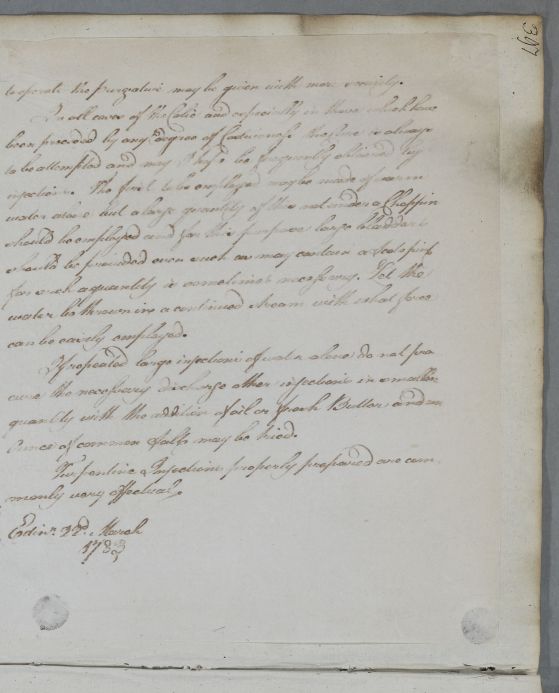 347
to operate the purgative may be given with more security.
In all cases of the Colic and especially in those which have
been preceded by any degree of Costiveness the Cure is always
to be attempted and may I hope be frequently obtained by
injections. The first to be employed may be made of warm
water alone but a large quantity of this not under a Choppin
should be employed and for this purpose large bladders
should be provided even such as may contain a Scots pint
for such a quantity is sometimes necessary. Let the
water be thrown in in a continued stream with what force
can be easily employed.
If repeated large injections of water alone do not pro
cure the necessary discharge other injections in smaller
quantity with the addition of oil or fresh Butter and an
Ounce of common Salt may be tried.
Turpentine Injections properly prepared are com
monly very effectual.
Edinr. 22d. March
1783